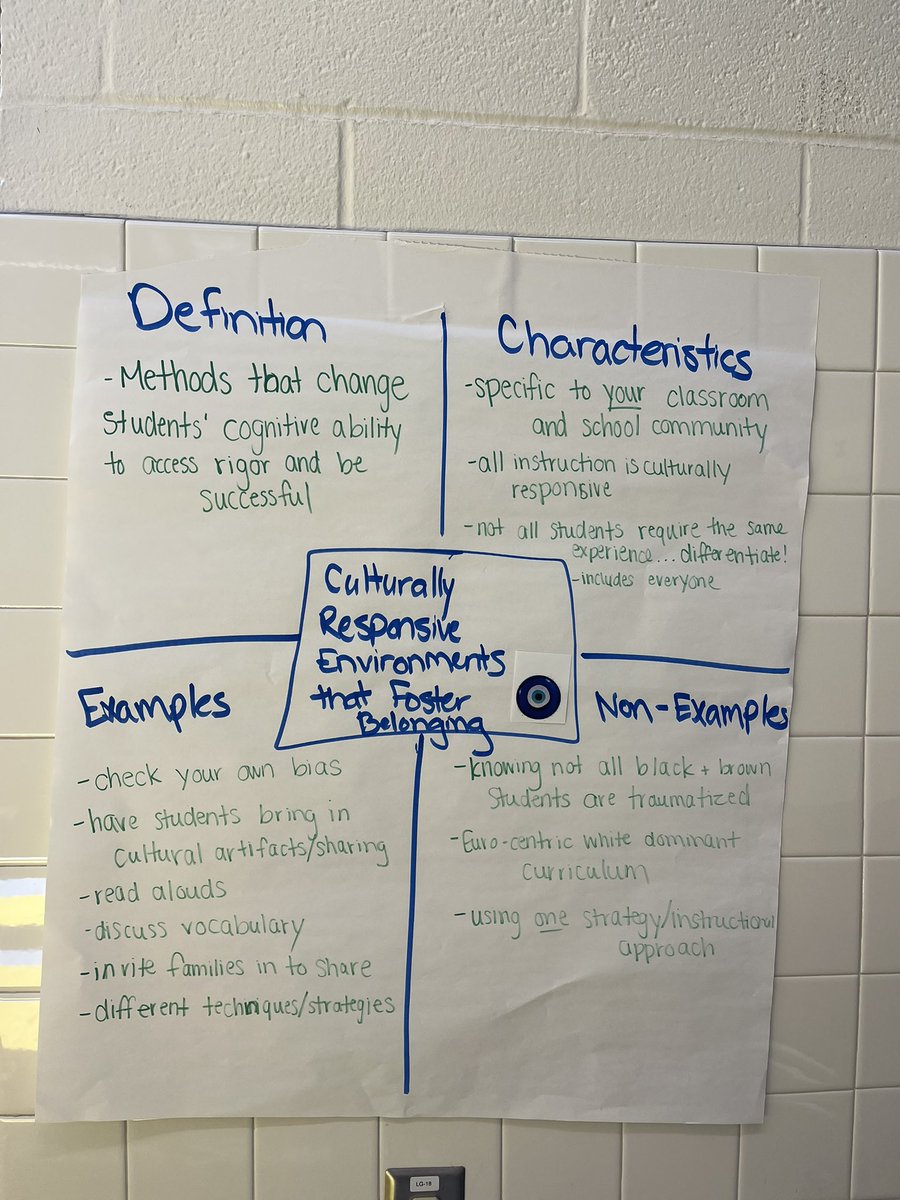 Definition
- Methods that change
students' cognitive ability
to access rigor and be
successful
Characteristics
-specific to your classroom
and school community
-all instruction is culturally
responsive
-not all students require the same
experience... differentiate!
-includes everyone
Culturally
Responsive
Environments
that Foster
Belonging
Examples
-check your own bias
-have students bring in
cultural artifacts/sharing
-read alouds
-discuss vocabulary
-invite families in to share
-different techniques/strategies
Non-Examples
-knowing not all black + brown
students are traumatized
-Euro-centric white dominant
curriculum
-using one strategy/instructional
approach
LG-18